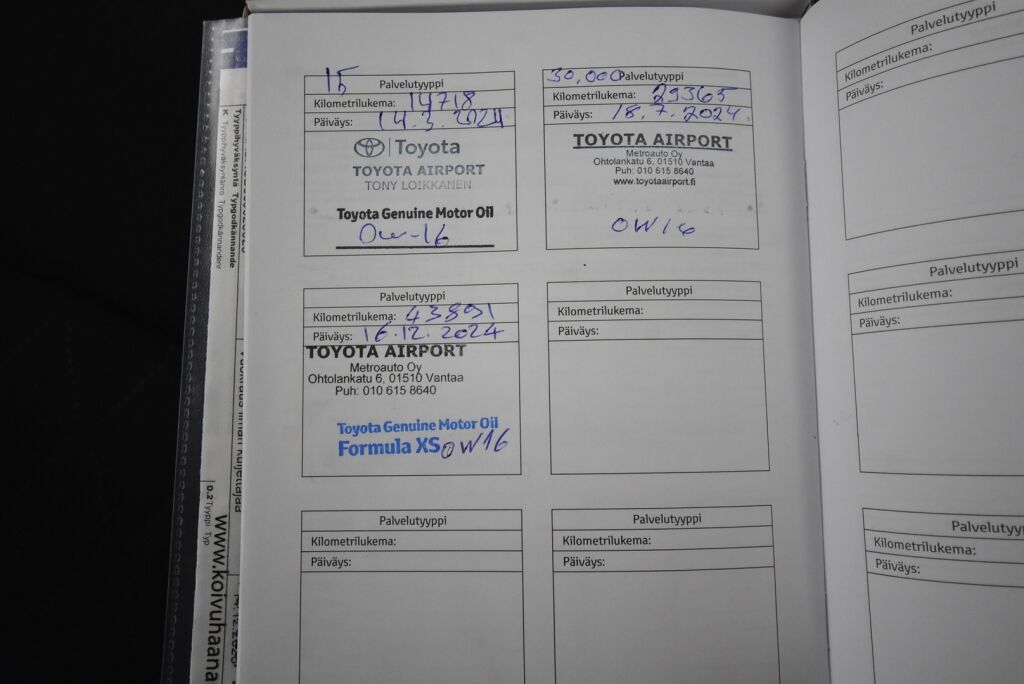 15
Palvelutyyppi
Kilometrilukema: 14718
Päiväys: 14.3.2024
Toyota
TOYOTA AIRPORT
TONY LOIKKANEN
Toyota Genuine Motor Oil
0w-16
30,000 Palvelutyyppi
Kilometrilukema: 29365
Päiväys: 18.7.2024
TOYOTA AIRPORT
Metroauto Oy
Ohtolankatu 6, 01510 Vantaa
Puh: 010 615 8640
www.toyotaairport.fi
0W16
Palvelutyyppi
Kilometrilukema: 43891
Päiväys: 16.12.2024
TOYOTA AIRPORT
Metroauto Oy
Ohtolankatu 6, 01510 Vantaa
Puh: 010 615 8640
Toyota Genuine Motor Oil
Formula XS 0W16
Palvelutyyppi
Kilometrilukema:
Päiväys:
Palvelutyyppi
Kilometrilukema:
Päiväys:
Palvelutyyppi
Kilometrilukema:
Päiväys:
Palvelutyyppi
Kilometrilukema:
Päiväys:
Palvelutyyppi
Kilometrilukema:
Päiväys:
Palvelutyyppi
Kilometrilukema:
Päiväys:
Tyyppihyväksyntä Typgodkännande
K Tyyppihyväksyntänro Typgodkännandenr
D.2 Tyyppi Typ
www.koivuhaana